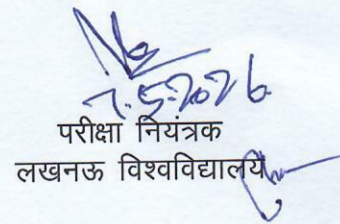 7.5.2026
परीक्षा नियंत्रक
लखनऊ विश्वविद्यालय